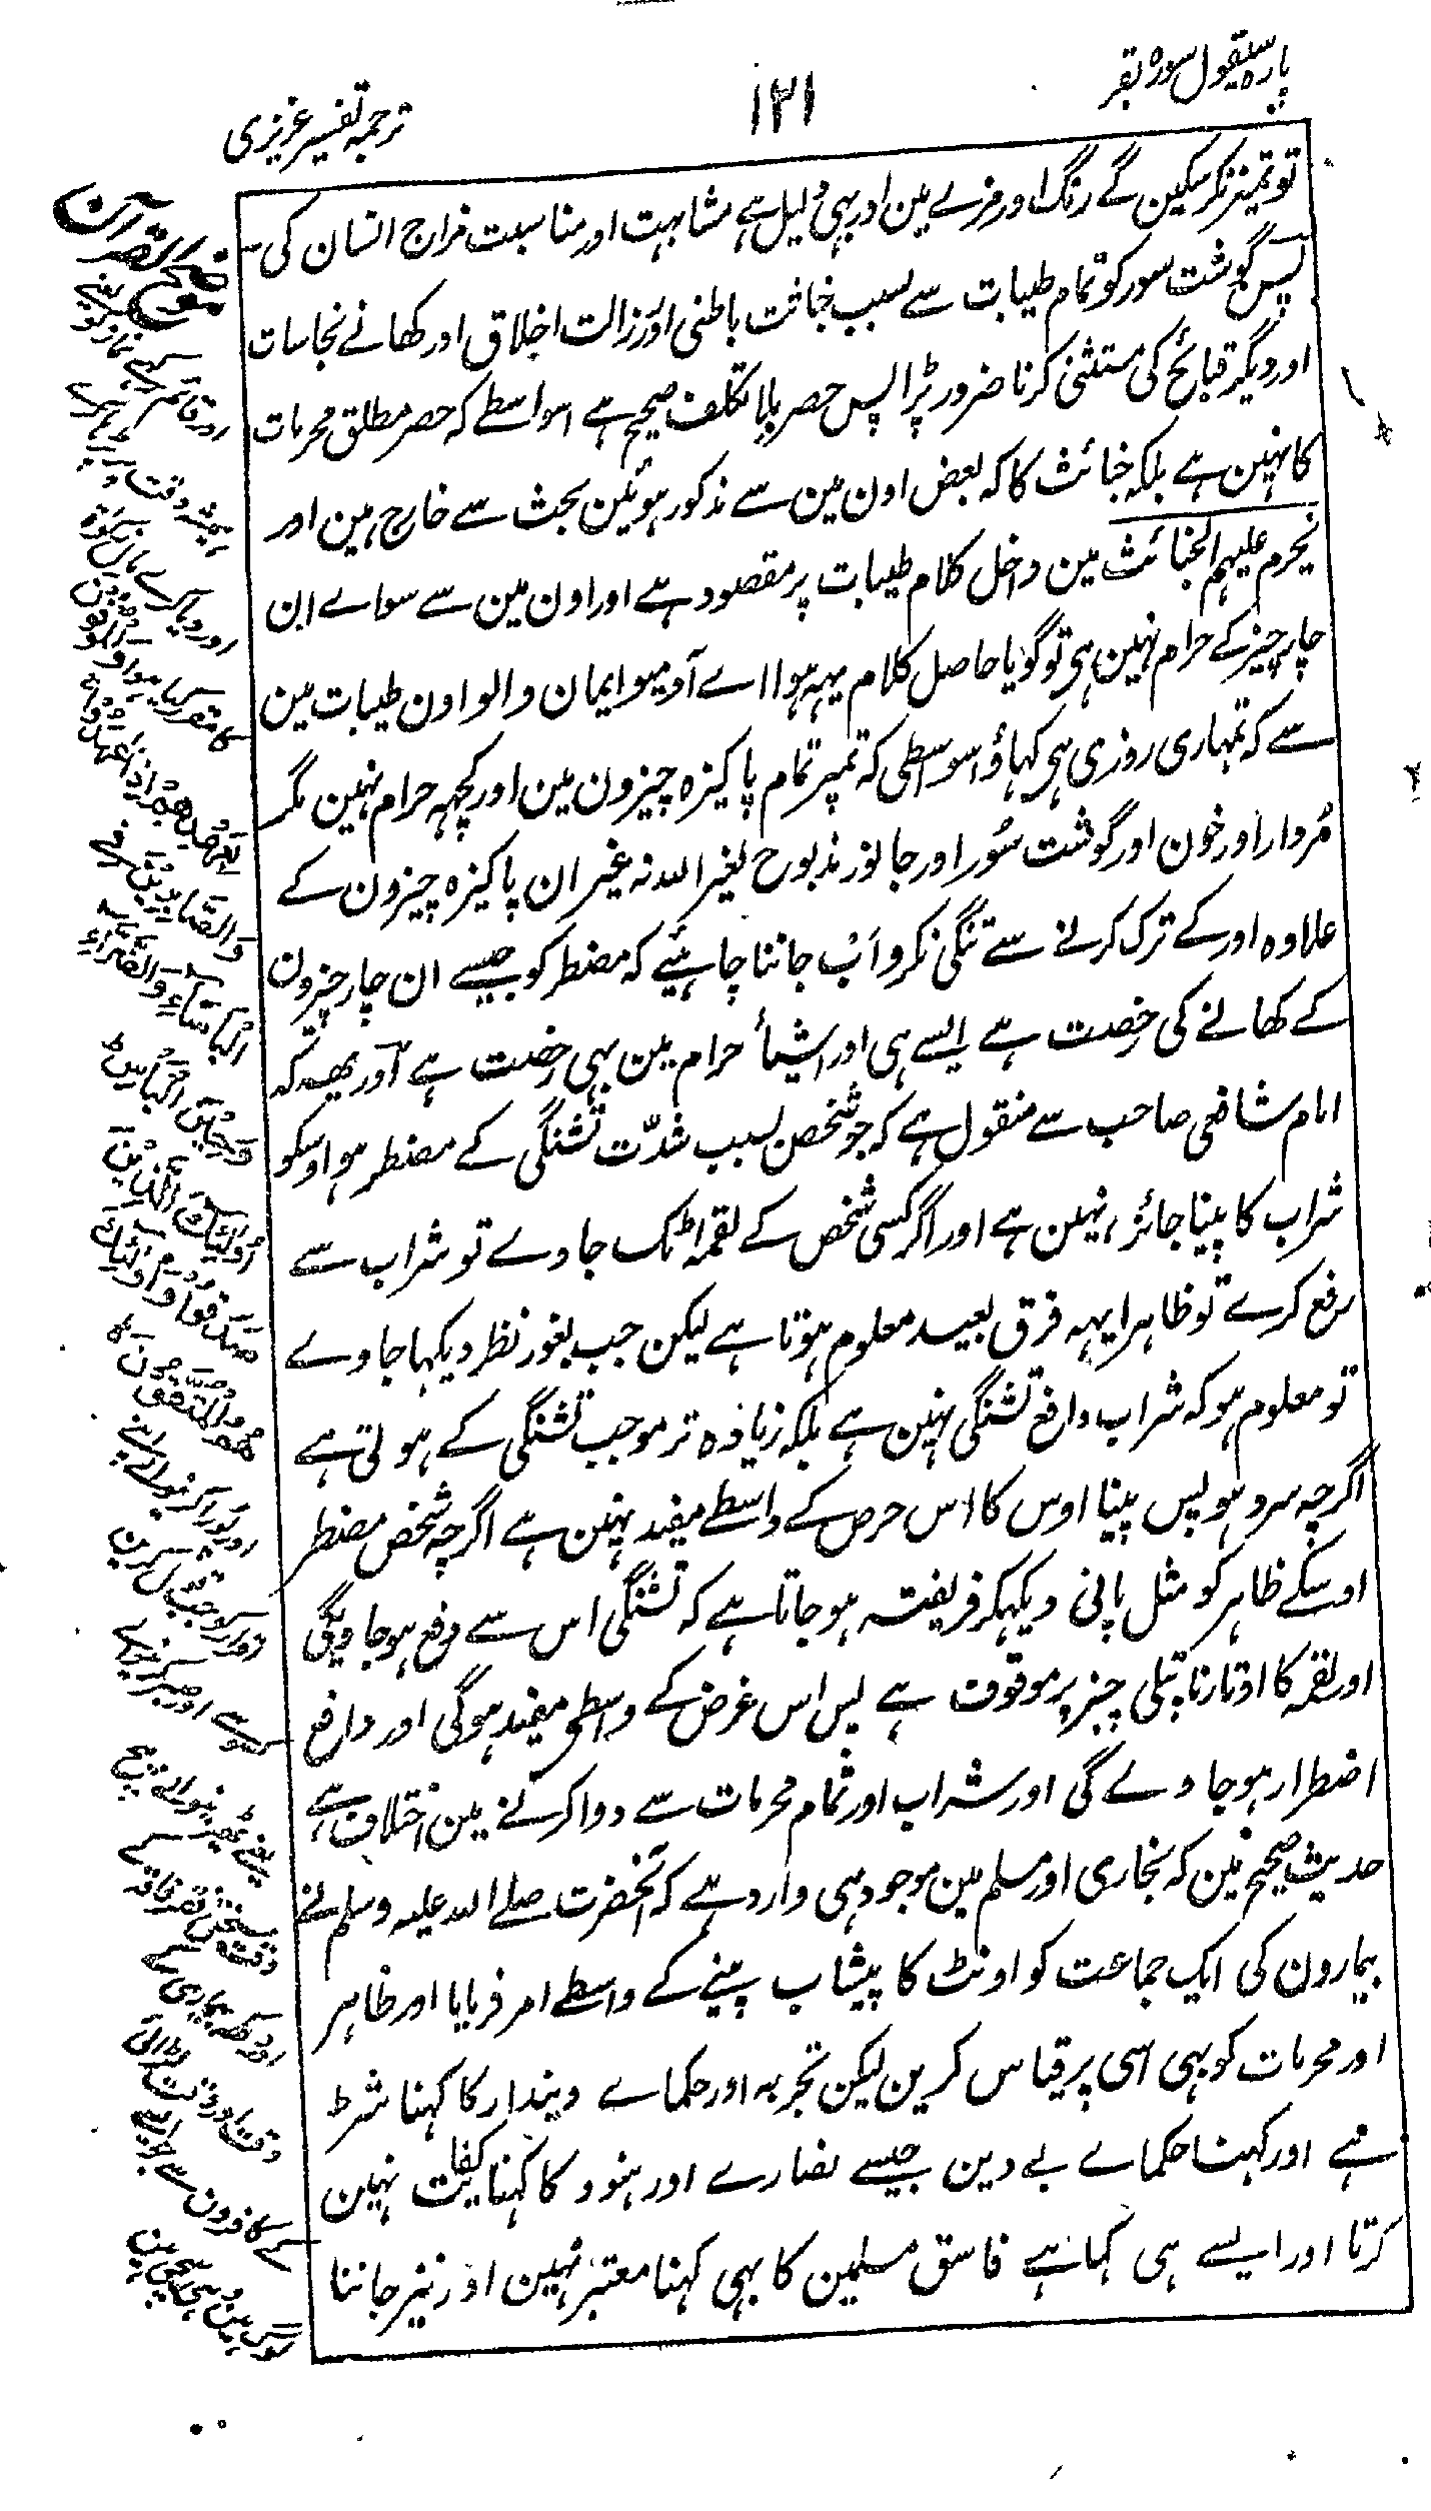 پارہ سیقول سورہ بقر
۱۲۱
ترجمہ تفسیر عزیزی
تو تمیز نکر سکین گے رنگ اور مزے مین اور یہی دلیل ہے مشابہت اور مناسبت مزاج انسان کی
پس گوشت سور کو تمام طیبات سے بسبب خباثت باطنی اور رزالت اخلاق اور کھانے نجاسات
اور دیگر قبائح کی مستثنیٰ کرنا ضرور پڑا پس حصر بلا تکلف صحیح ہے اسواسطے کہ حصر مطلق محرمات
کا نہین ہے بلکہ خبائث کا کہ بعض اون مین سے مذکور ہوئین بحث سے خارج ہین اور
یحرم علیہم الخبائث مین داخل کلام طیبات پر مقصود ہے اور اون مین سے سواے ان
چار چیز کے حرام نہین ہی تو گویا حاصل کلام یہہ ہوا اے آدمیو ایمان والو اون طیبات مین
سے کہ تمہاری روزی ہی کہاؤ اسواسطی کہ تمپر تمام پاکیزہ چیزون مین اور کچہہ حرام نہین مگر
مُردار اور خون اور گوشت سُور اور جانور مذبوح لغیر اللہ نہ غیر ان پاکیزہ چیزون کے
علاوہ اور کے ترک کرنے سے تنگی نکرو اَبْ جاننا چاہئیے کہ مضطر کو جیسے ان چار چیزون
کے کھانے کی رخصت ہے ایسے ہی اور اشیأ حرام مین بہی رخصت ہے اور یہہ کہ
امام شافعی صاحب سے منقول ہے کہ جو شخص بسبب شدّت تشنگی کے مضطر ہو اوسکو
شراب کا پینا جائز نہین ہے اور اگر کسی شخص کے لقمہ اٹک جاوے تو شراب سے
رفع کرے تو ظاہرا یہہ فرق بعید معلوم ہوتا ہے لیکن جب بغور نظر دیکہا جاوے
تو معلوم ہو کہ شراب دافع تشنگی نہین ہے بلکہ زیادہ تر موجب تشنگی کے ہوتی ہے
اگرچہ سرد ہو پس پینا اوس کا اس حرص کے واسطے مفید نہین ہے اگرچہ شخص مضطر
اوسکے ظاہر کو مثل پانی دیکہکر فریفتہ ہو جاتا ہے کہ تشنگی اس سے دفع ہو جاویگی
اور لقمہ کا اوتارنا پتلی چیز پر موقوف ہے پس اس غرض کے واسطی مفید ہوگی اور دافع
اضطرار ہو جاوے گی اور شراب اور تمام محرمات سے دوا کرنے مین اختلاف ہے
حدیث صحیح مین کہ بخاری اور مسلم مین موجود ہی وارد ہے کہ آنحضرت صلے اللہ علیہ وسلم نے
بیمارون کی ایک جماعت کو اونٹ کا پیشاب پینے کے واسطے امر فرمایا اور ظاہر
اور محرمات کو بہی اسی پر قیاس کرین لیکن تجربہ اور حکماے دیندار کا کہنا شرط
ہے اور کہنا حکماے بے دین جیسے نصارے اور ہنود کا کہنا کفایت نہین
کرتا اور ایسے ہی کہا ہے فاسق مسلمین کا بہی کہنا معتبر نہین اور نیز جاننا
موضح القرآن
اور قائم رکھے نماز کو یعنے
ہمیشہ وقت پر
اور دیا کرے مال زکوٰۃ
کا مقرر کیا ہوا وَالْمُوْفُوْنَ
بِعَهْدِهِمْ اِذَا عٰهَدُوْا
وَالصّٰبِرِيْنَ فِي
الْبَاْسَآءِ وَالضَّرَّآءِ
وَحِيْنَ الْبَاْسِ
اُولٰٓئِكَ الَّذِيْنَ
صَدَقُوْا وَاُولٰٓئِكَ
هُمُ الْمُتَّقُوْنَ
اور پورا کرنیوالے اپنے
قول کو جب قول کرین
اور صبر کرنیوالے
وقت سختی فقر فاقہ کے
اور دکھ بیماری کے
وقت اور وقت لڑائی
کے کافرون سے
لوگ ہین وہی سچی ہین